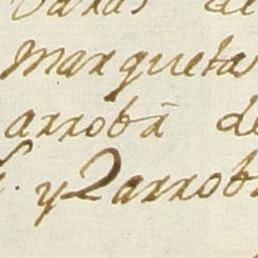 varas de
marquetas
arrobā de
y 2 arrob